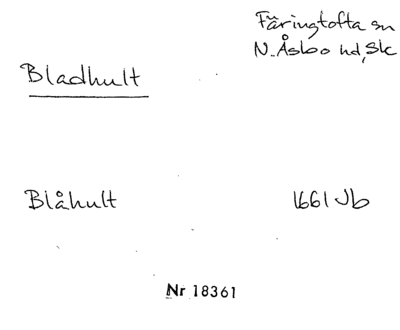 Färingtofta sn
N. Åsbo hd, Sk
Bladhult
Blåhult 1661 Jb
Nr 18361